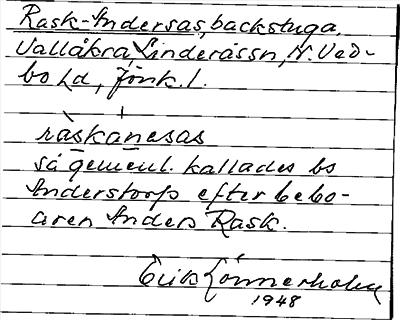 Rask-Andersas, backstuga,
Vallåkra, Linderåssn, N. Ved-
bo hd, Jönk. l.
raskanesas
så gemenl. kallades bs
Anderstorp efter bebo-
aren Anders Rask.
Erik Lönnerholm
1948